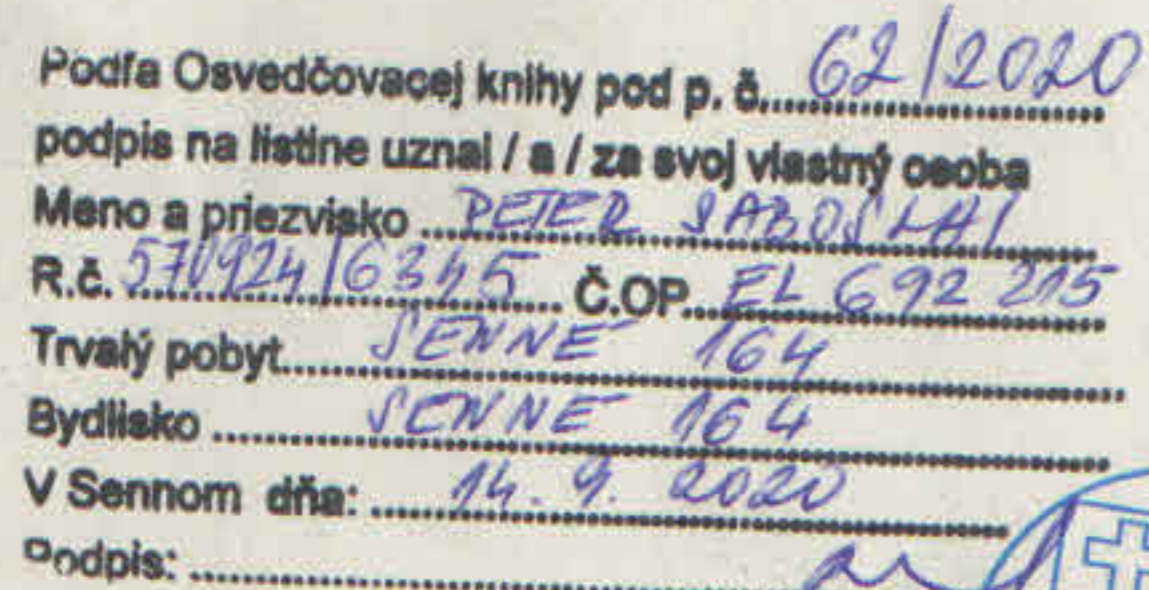 Podľa Osvedčovacej knihy pod p. č. 62/2020
podpis na listine uznal / a / za svoj vlastný osoba
Meno a priezvisko PETER SABOSLAI
R.č. 570924/6345 Č.OP. EL 692 215
Trvalý pobyt SENNÉ 164
Bydlisko SENNÉ 164
V Sennom dňa: 14. 9. 2020
Podpis: